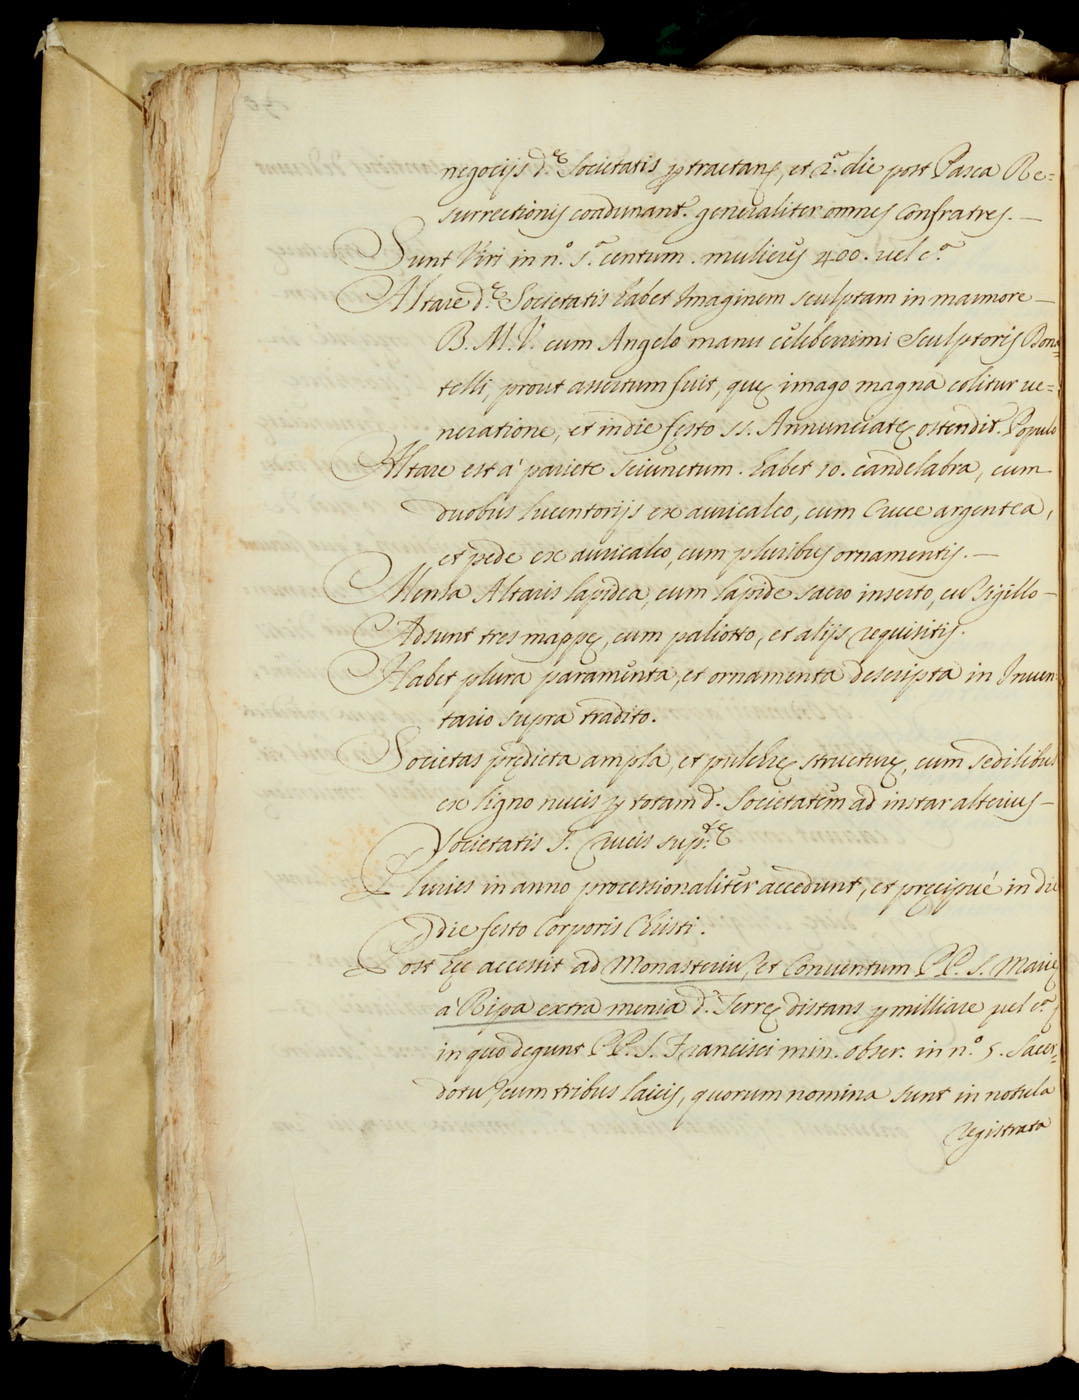 negocijs d.ę Societatis ꝑtractanę, et 2.ª die post Pasca Re=
surrectionis coadunant.r generaliter omnes Confratres. —
Sunt Viri in n.º s.ª centum. mulieres 400. vel c.ª
Altare d.ę Societatis habet Imaginem sculptam in marmore —
B. M. V. cum Angelo manu celeberrimi Sculptoris Dona=
telli, prout assertum fuit, quę imago magna colitur ue=
neratione, et in die festo SS. Annunciatę ostendit.r Populo
Altare est à pariete seiunctum. habet 10. candelabra, cum
duobus lucentorijs ex auricalco, cum Cruce argentea,
et pede ex auricalco, cum pluribus ornamentis. —
Mensa Altaris lapidea, cum lapide sacro inserto, cū sigillo —
Adsunt tres mappę, cum paliotto, et alijs requisitis.
Habet plura paramenta, et ornamenta descripta in Inuen=
tario supra tradito.
Societas prędicta ampla, et pulchrę structurę, cum sedilibus
ex ligno nucis ꝑ totam d. Societatem ad instar alterius —
Societatis S. Crucis sup.tę
Pluries in anno processionaliter accedunt, et pręcipué in die
die festo Corporis Christi.
Post hęc accessit ad Monasteriū, et Conuentum PP. S. Marię
à Ripa extra menia d. Terrę distans ꝑ milliare vel c.ª
in quo degunt PP. S. Francisci min. obser. in n.º 5. Sacer=
dotū, cum tribus laicis, quorum nomina sunt in notula
registrata